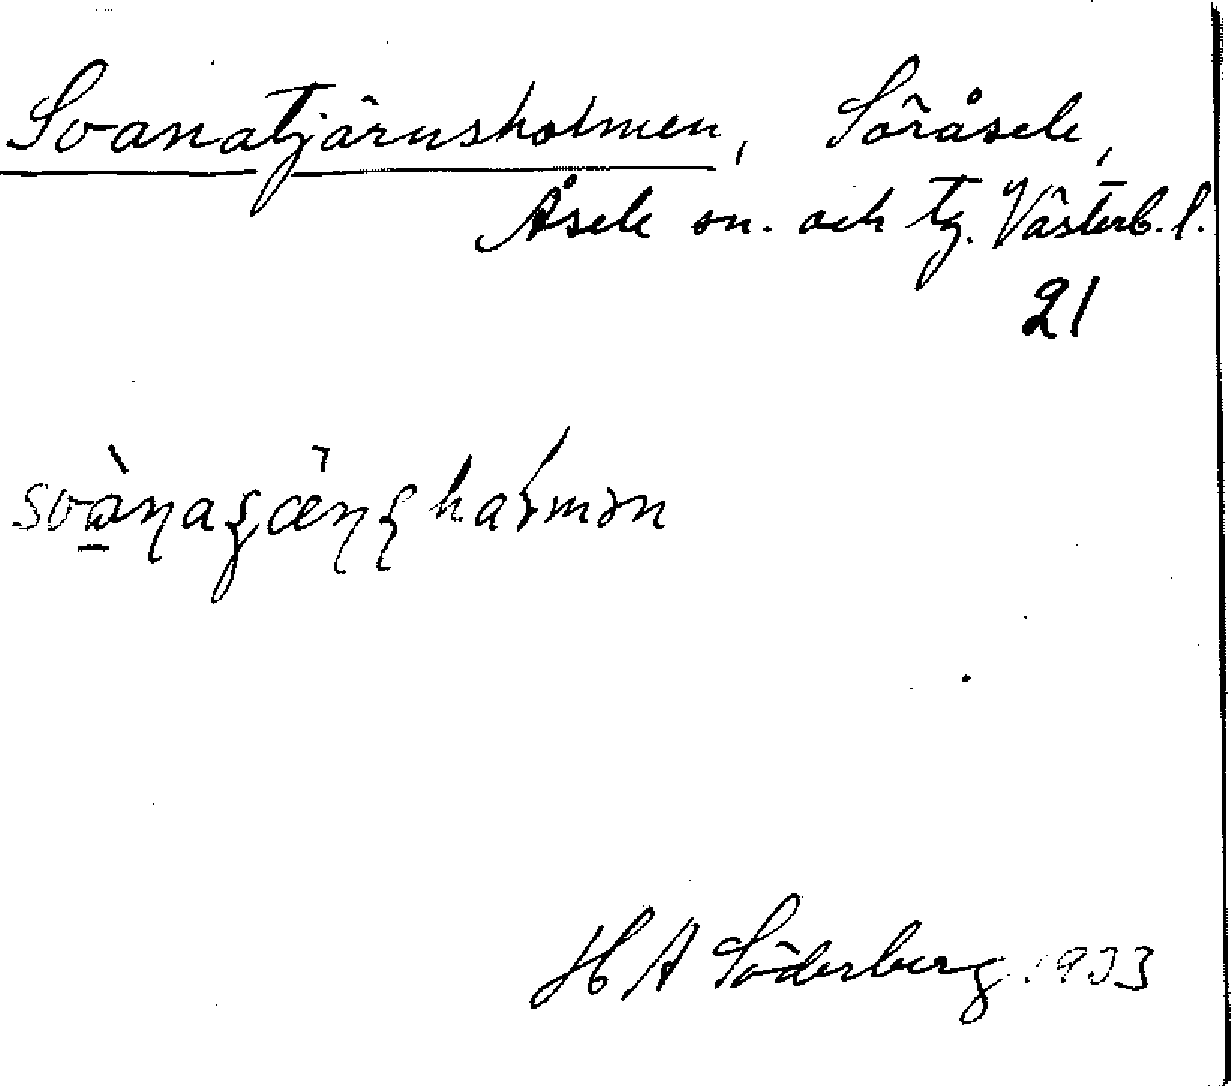 Svanatjärnsholmen, Söråsele,
Åsele sn. och tg. Västerb. l.
21
H A Söderberg. 1933